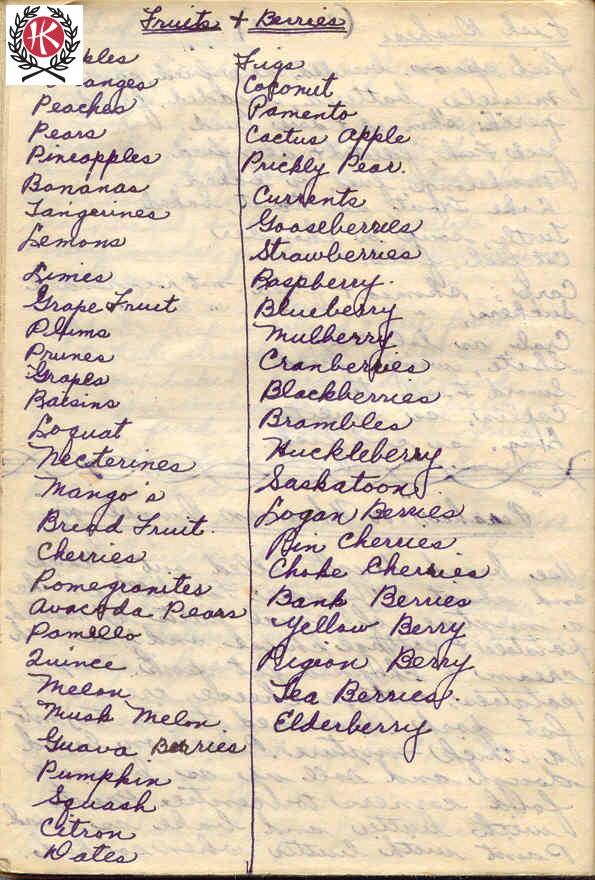 Fruits + Berries
Peaches
Pears
Pineapples
Bananas
Tangerines
Lemons
Limes
Grape Fruit
Plums
Prunes
Grapes
Raisins
Loquat
Necterines
Mango's
Bread Fruit.
Cherries
Pomegranites
Avacoda Pears
Pomello
Quince
Melon
Musk Melon
Guava Berries
Pumpkin
Squash
Citron
Dates
Figs
Coconut
Pamento
Cactus Apple
Prickly Pear.
Currents
Gooseberries
Strawberries
Raspberry.
Blueberry
Mulberry
Cranberries
Blackberries
Brambles
Huckleberry
Saskatoon
Logan Berries
Pin Cherries
Choke Cherries
Bank Berries
Yellow Berry
Pigeon Berry
Tea Berries.
Elderberry